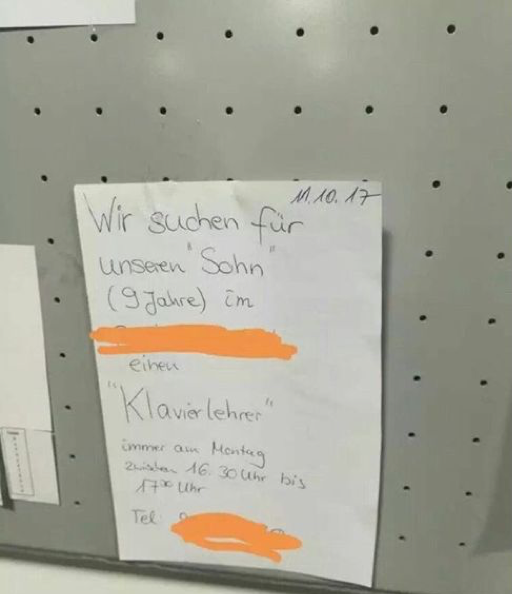 11.10.17
Wir suchen für
unseren "Sohn"
(9 Jahre) im
einen
"Klavierlehrer"
immer am Montag
zwischen 16.30 Uhr bis
17⁰⁰ Uhr
Tel: